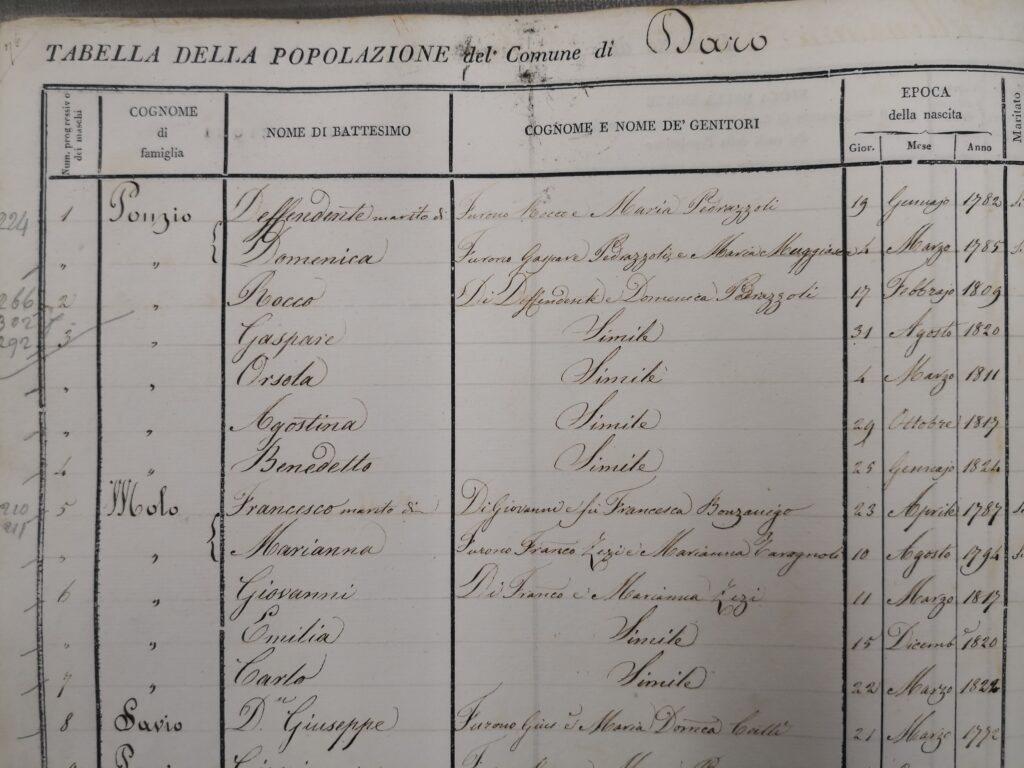 TABELLA DELLA POPOLAZIONE del Comune di Daro
Num. progressivo dei maschi
COGNOME di famiglia
NOME DI BATTESIMO
COGNOME E NOME DE' GENITORI
EPOCA della nascita
Gior. Mese Anno
Maritato
224 1 Ponzio Deffendente marito di Furono Rocco e Maria Pedrazzoli 19 Gennajo 1782
" " Domenica Furono Gaspare Pedrazzoli e Maria Maggiasca 4 Marzo 1785
266 2 " Rocco Di Deffendente e Domenica Pedrazzoli 17 Febbrajo 1809
302
292 3 " Gaspare Simile 31 Agosto 1820
" " Orsola Simile 4 Marzo 1811
" " Agostina Simile 29 Ottobre 1817
4 " Benedetto Simile 25 Gennajo 1824
210 5 Molo Francesco marito di Di Giovanni e fu Francesca Bonzanigo 23 Aprile 1787
211
" " Marianna Furono Franco Zezi e Marianna 10 Agosto 1794
6 " Giovanni Di Franco e Marianna Zezi 11 Marzo 1817
" " Emilia Simile 15 Dicembe 1820
7 " Carlo Simile 22 Marzo 1822
8 Savio Dn Giuseppe Furono Gius e Maria Domca 21 Marzo 1772